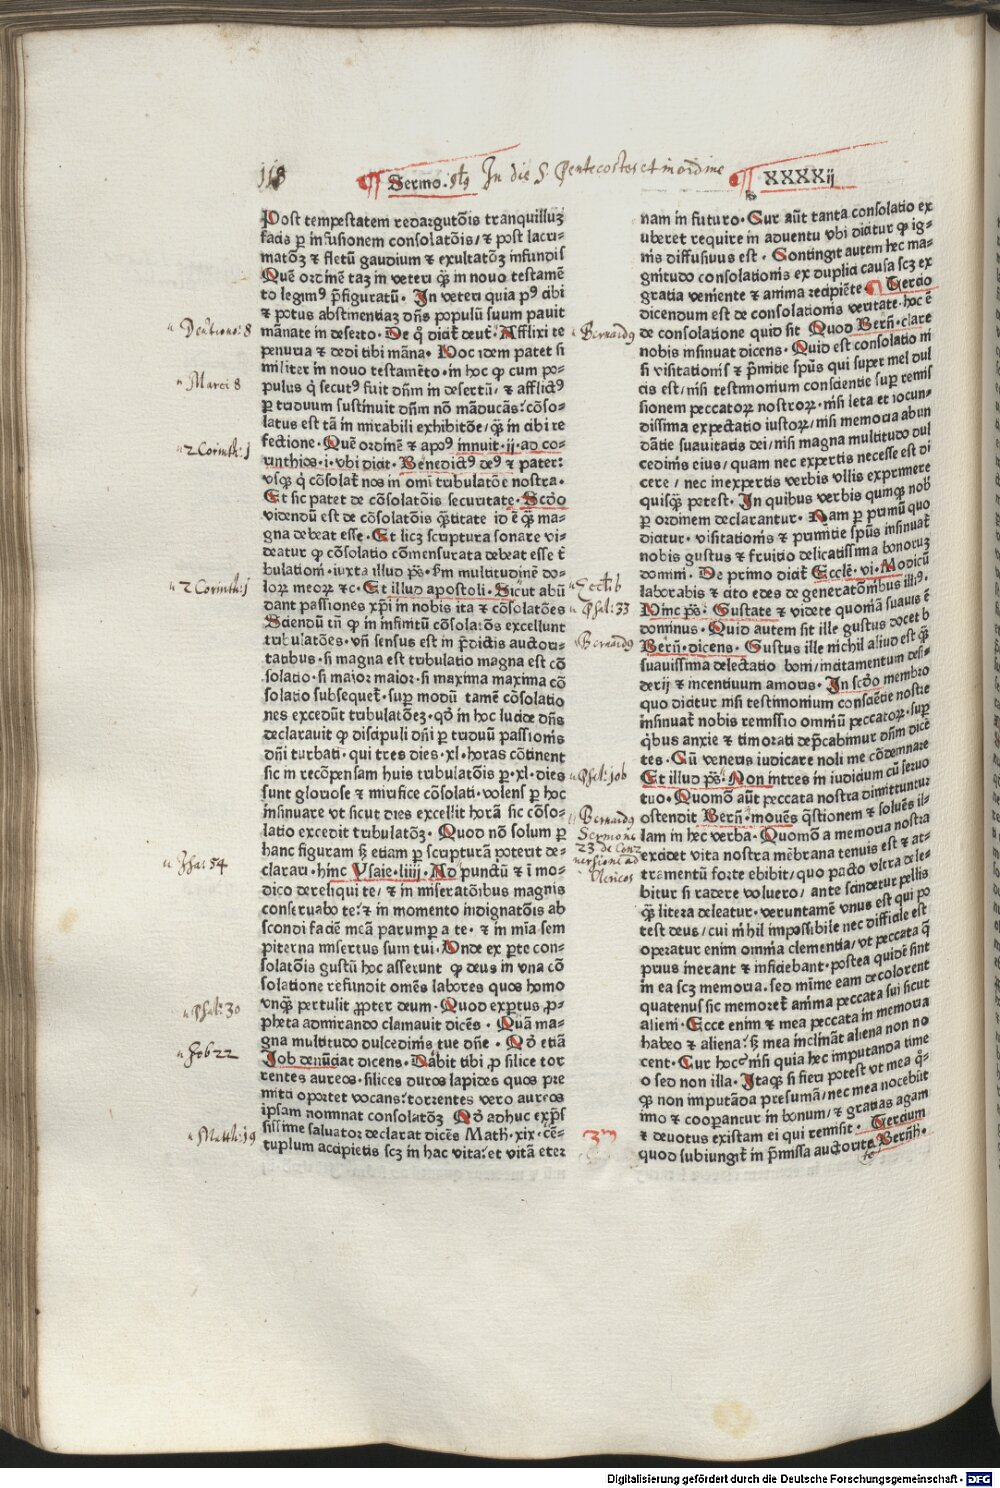 118
Sermo. In die S. Pentecostes et in ordine
XXXXij
Post tempestatem redargutōis tranquilluʒ
facis ꝑ infusionem consolatōis/ ⁊ post lacri⸗
matōʒ ⁊ fletū gaudium ⁊ exultatōʒ infundis
Quē ordinē taʒ in veteri q̄ʒ in nouo testamē
to legimꝰ p̄figuratū. In veteri quia pꝰ cibi
⁊ potus abstinentiaʒ dn̄s populū suum pauit
mānate in deserto. De q̊ dicit̄ deut̄. Afflixi te
penuria ⁊ dedi tibi māna. Hoc idem patet si
militer in nouo testamēto. in hoc ꝙ cum po⸗
pulus q̇ secutꝰ fuit dn̄m in desertū/ ⁊ afflictꝰ
ꝑ triduum sustinuit dn̄m nō māducās: cōso⸗
latus est tā in mirabili exhibitōe/ q̄ʒ in cibi re
fectione. Quē ordinē ⁊ apoꝰ innuit. ij. ad co⸗
rinthios. i. vbi dicit. Benedictꝰ deꝰ ⁊ pater:
vsqʒ q̇ cōsolat̄ nos in omi tribulatōe nostra.
Et sic patet de cōsolatōis securitate. Scd̄o
videndū est de cōsolatōis q̄ntitate id ē q̄ʒ ma⸗
gna debeat esse. Et licʒ scriptura sonare vi⸗
deatur ꝙ cōsolatio cōmensurata debeat esse t̄
bulatiom̄. iuxta illud ps̄. s̄m multitudinē do⸗
loꝝ meoꝝ ⁊c. Et illud apostoli. Sicut abū
dant passiones xp̄i in nobis ita ⁊ cōsolatōes
Sciendū tn̄ ꝙ in infinitū cōsolatōs excellunt
tribulatōes. vn̄ sensus est in p̄dictis auctori⸗
tatibus. si magna est tribulatio magna est cō
solatio. si maior maior. si maxima maxima cō
solatio subsequet̄. suꝑ modū tamē cōsolatio
nes excedūt tribulatōeʒ. qd̊ in hoc lucide dn̄s
declarauit ꝙ discipuli dn̄i ꝑ triduū passionis
dn̄i turbati. qui tres dies. xl. horas cōtinent
sic in recōpensam huis tribulatōis ꝑ. xl. dies
sunt gloriose ⁊ mirifice cōsolati. volens ꝑ hoc
insinuare vt sicut dies excellit horā sic cōso⸗
latio excedit tribulatōʒ. Quod nō solum ꝑ
hanc figuram sʒ etiam ꝑ scripturā poterit de⸗
clarari. hinc Ysaie. liiij. Ad punctū ⁊ ī mo⸗
dico dereliqui te/ ⁊ in miseratōibus magnis
conseruabo te: ⁊ in momento indignatōis ab
scondi faciē meā parumꝑ a te. ⁊ in mīa sem
piterna misertus sum tui. Unde ex ꝑte con⸗
solatōis gustū hoc asserunt ꝙ deus in vna cō
solatione refundit omēs labores quos homo
vnq̄ʒ pertulit ꝓpter deum. Quod exꝑtus ꝓ⸗
pheta admirando clamauit dicēs. Quā ma⸗
gna multitudo dulcedinis tue dn̄e. Qd̊ etiā
Job denūciat dicens. Dabit tibi ꝓ silice tor
rentes aureos. silices duros lapides quos pre
miti oportet vocans: torrentes vero aureos
ipsam nominat consolatōʒ Qd̊ adhuc exp̄s
sissime saluator declarat dicēs Math. xix. cē⸗
tuplum accipietis scʒ in hac vita: et vitā eter
nam in futuro. Cur aūt tanta consolatio ex
uberet require in aduentu vbi dicitur ꝙ ig⸗
nis diffusiuus est. Contingit autem hec ma⸗
gnitudo consolationis ex duplici causa scʒ ex
gratia veniente ⁊ anima recipiēte. Tercio
dicendum est de consolationis veritate. hoc ē
de consolatione quid sit Quod Bern̄. clare
nobis insinuat dicens. Quid est consolatio ni
si visitationis ⁊ p̄mitie spūs qui super mel dul
cis est/ nisi testimonium conscientie suꝑ remis
sionem peccatoꝝ nostroꝝ. nisi leta et iocun⸗
dissima expectatio iustoꝝ/ nisi memoria abun
dātie suauitatis dei/ nisi magna multitudo dul
cedinis eius/ quam nec expertis necesse est di
cere / nec inexpertis verbis vllis exprimere
quisq̄ʒ potest. In quibus verbis quinqʒ nob̄
ꝑ ordinem declarantur. Nam ꝑ primū quo
dicitur. visitationis ⁊ primitie spūs insinuat̄
nobis gustus ⁊ fruitio delicatissima bonoruʒ
domini. De primo dicit̄ Eccle. vi. Modicū
laborabis ⁊ cito edes de generatōnibus illiꝰ.
Hinc ps̄. Gustate ⁊ videte quoniā suauis ē
dominus. Quid autem sit ille gustus docet b
Bern̄. dicens. Gustus ille nichil aliud est q̄ʒ
suauissima delectatio boni/ incitamentum desi⸗
derij ⁊ incentiuum amoris. In scd̄o membro
quo dicitur nisi testimonium consciētie nostre
insinuat̄ nobis remissio omniū peccatoꝝ. suꝑ
q̇bus anxie ⁊ timorati dep̄cabimur dn̄m dicē
tes. Cū veneris iudicare noli me cōdemnare
Et illud ps̄. Non intres in iudicium cū seruo
tuo. Quomō aūt peccata nostra dimittuntur
ostendit Bern̄. mouēs q̄stionem ⁊ soluēs il⸗
lam in hec verba. Quomō a memoria nostra
excidet vita nostra mēbrana tenuis est ⁊ at⸗
tramentū forte ebibit/ quo pacto vltra dele⸗
bitur si radere voluero/ ante scindetur pellis
q̄ʒ litera deleatur. veruntamē vnus est qui po
test deus/ cui nihil impossibile nec difficile est
operatur enim omnia clementia/ vt peccata q̄
prius inerant ⁊ inficiebant. postea quidē sint
in ea scʒ memoria. sed minime eam decolorent
quatenus sic memoret̄ anima peccata sui sicut
alieni. Ecce enim ⁊ mea peccata in memoria
habeo ⁊ aliena: sʒ mea inclināt aliena non no
cent. Cur hoc: nisi quia hec imputanda time
o sed non illa. Itaqʒ si fieri potest vt mea q̊⸗
qʒ non imputāda presumā/ nec mea nocebūt
imo ⁊ cooperantur in bonum/ ⁊ gratias agam
⁊ deuotus existam ei qui remisit. Tercium
quod subiungit̄ in p̄missa auctorite Bern̄h.
Deutrono: 8
Marci 8
2 Corinth: 1
2 Corinth: 1
Isa: 54
Psal: 30
Job 22
Matth: 19
Bernardꝰ
Eccli: 6
Psal: 33
Bernardꝰ
Psal: job
Bernardꝰ
Sermone
23 de Con
uersione ad
Clericos
3ᵐ
Digitalisierung gefördert durch die Deutsche Forschungsgemeinschaft - DFG